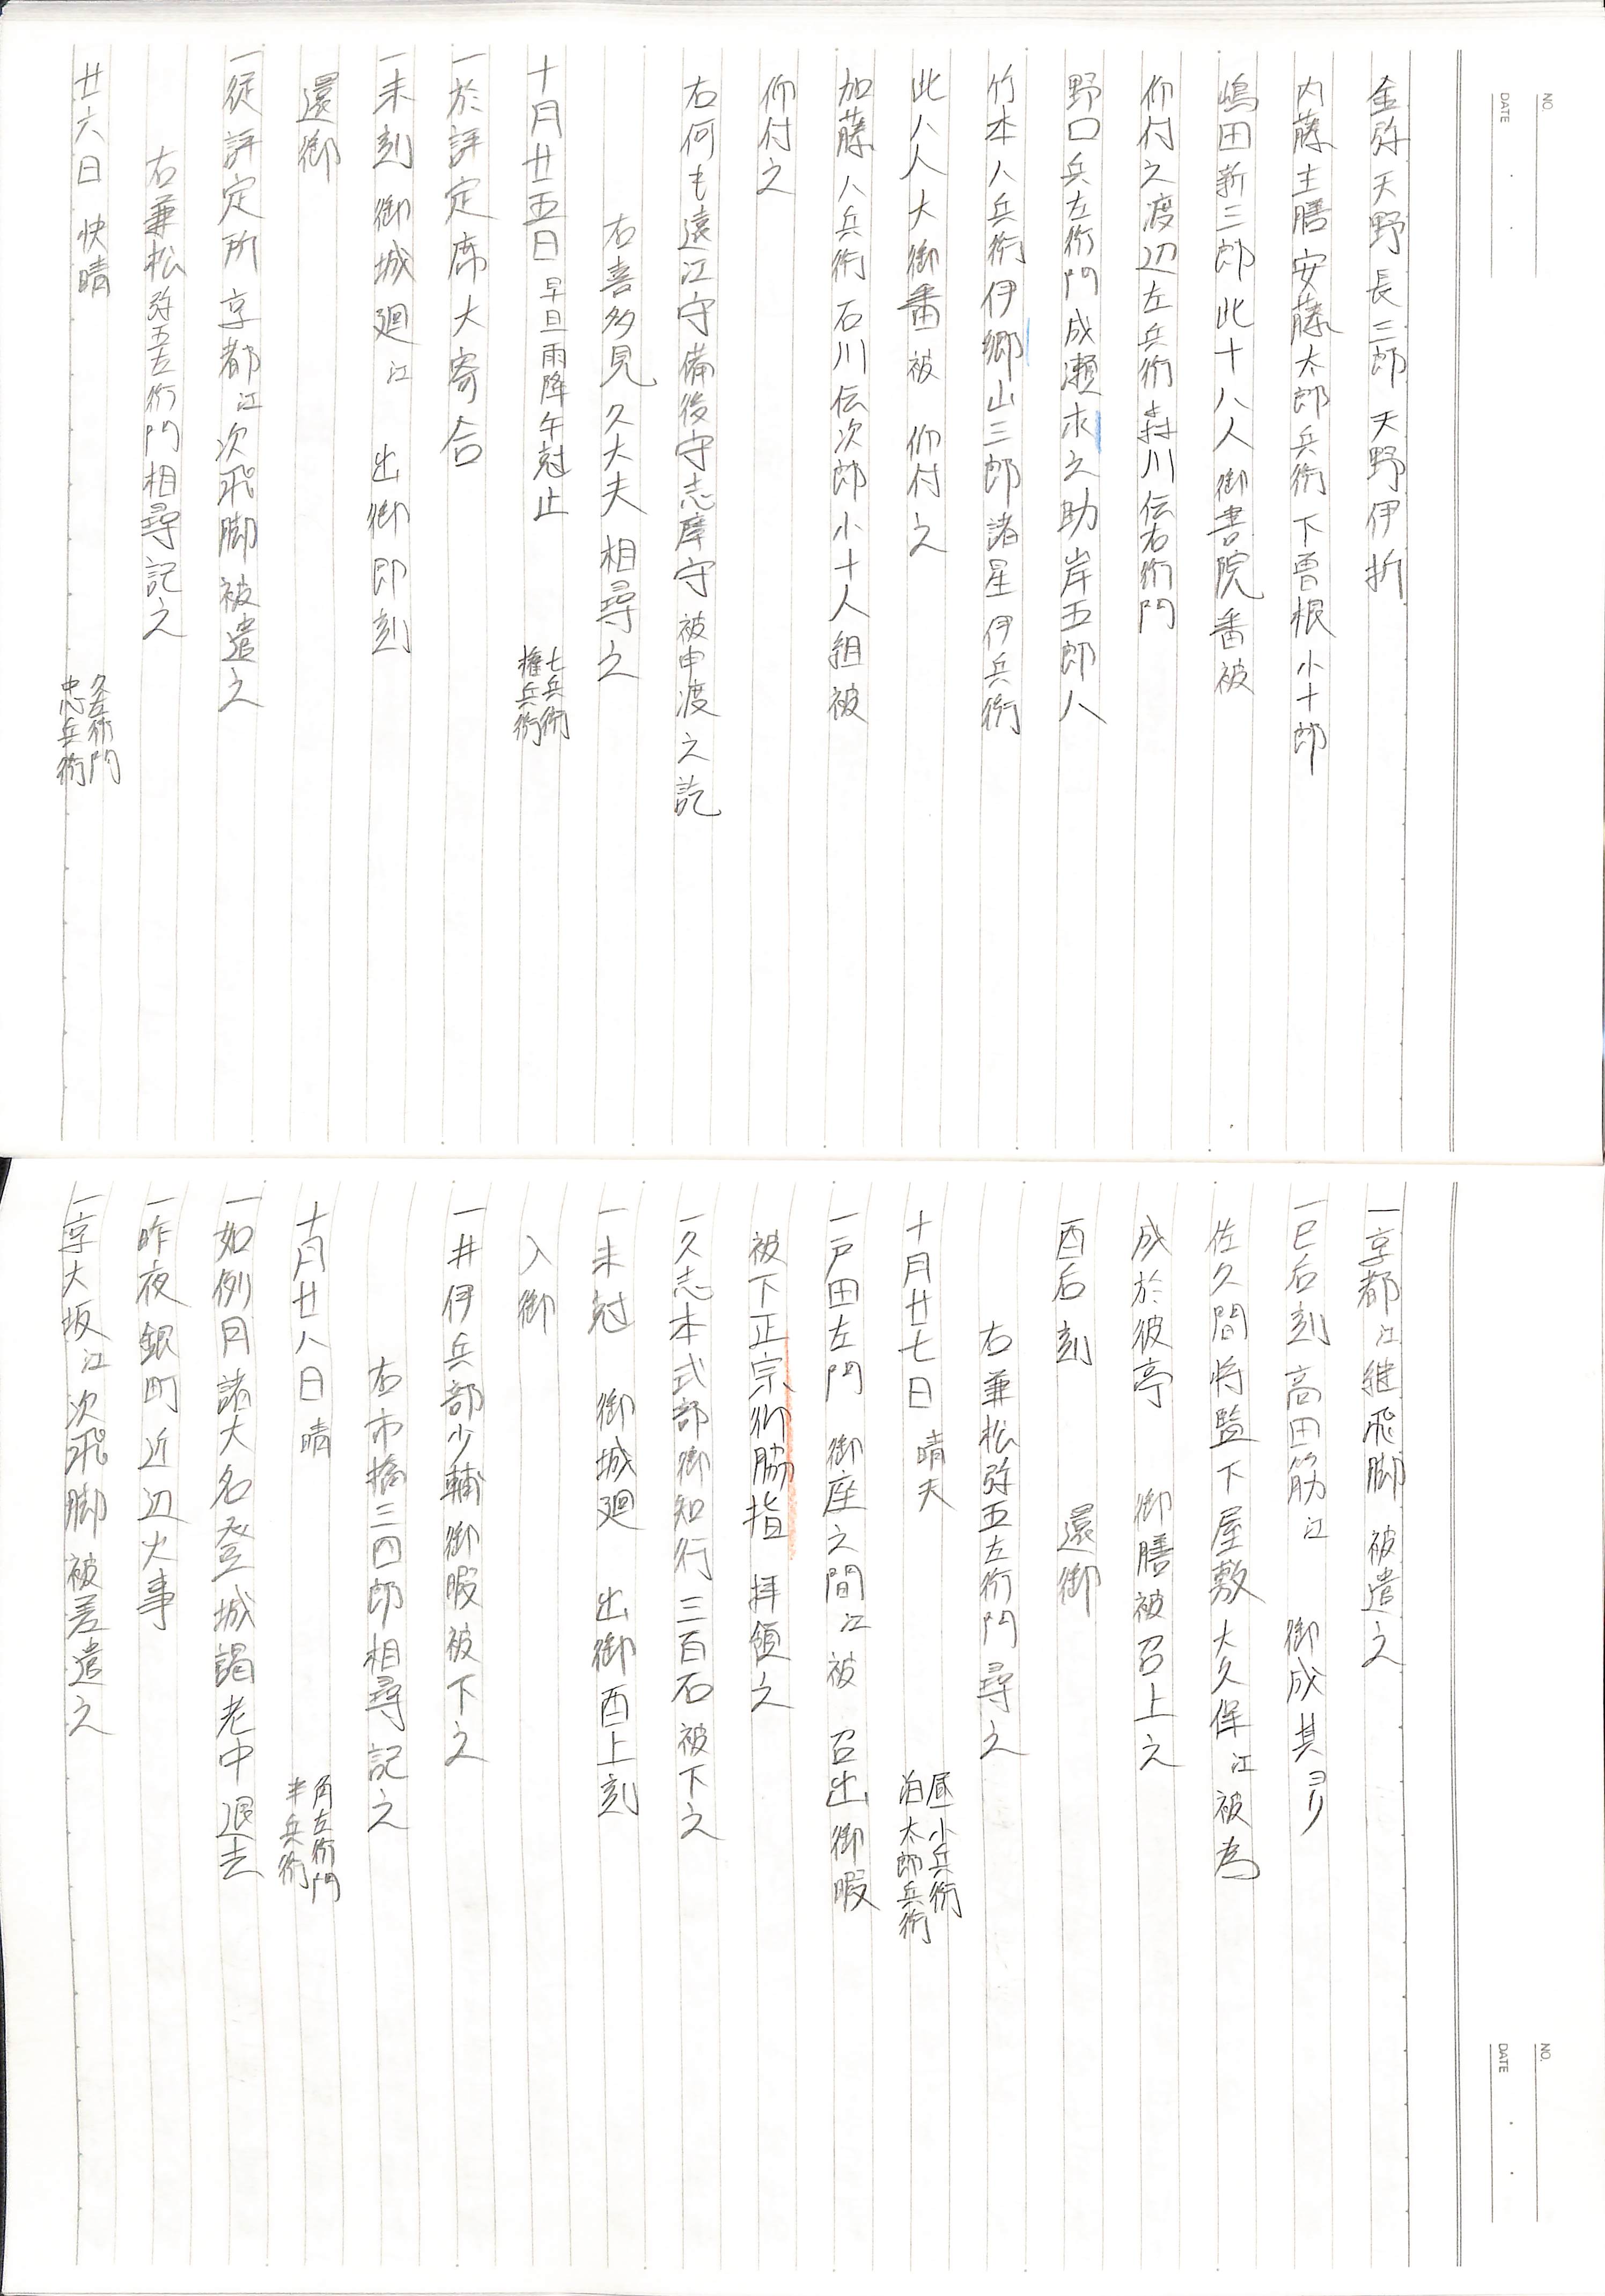 NO.
DATE
金弥天野長三郎 天野伊折
内藤主膳 安藤太郎兵衛 下曽根小十郎
嶋田新三郎 此十八人 御書院番被
仰付之渡辺左兵衛 森川伝右衛門
野口兵左衛門 成瀬求之助 岸五郎八
竹本八兵衛 伊郷山三郎 諸星伊兵衛
此八人大御番被 仰付之
加藤八兵衛 石川伝次郎 小十人組被
仰付之
右何も遠江守備後守志摩守被申渡之訖
右喜多見久大夫相尋之
十月廿五日 早旦雨降午尅止 七兵衛 権兵衛
一於評定席大寄合
一未刻 御城廻江 出御即刻
還御
一従評定所京都江次飛脚被遣之
右兼松弥五左衛門相尋記之
廿六日 快晴 久左衛門 忠兵衛
NO.
DATE
一京都江継飛脚 被遣之
一巳后刻 高田筋江 御成其ヨリ
佐久間将監下屋敷大久保江被為
成於彼亭 御膳被召上之
酉后刻 還御
右兼松弥五左衛門尋之
十月廿七日 晴天 昼小兵衛 泊太郎兵衛
一戸田左門 御座之間江被 召出御暇
被下正宗御脇指 拝領之
一久志本式部御知行三百石被下之
一未尅 御城廻 出御酉上刻
入御
一井伊兵部少輔御暇被下之
右市橋三四郎相尋記之
十月廿八日 晴 角左衛門 半兵衛
一如例月諸大名登城謁老中退去
一昨夜銀町近辺火事
一京大坂江次飛脚被差遣之